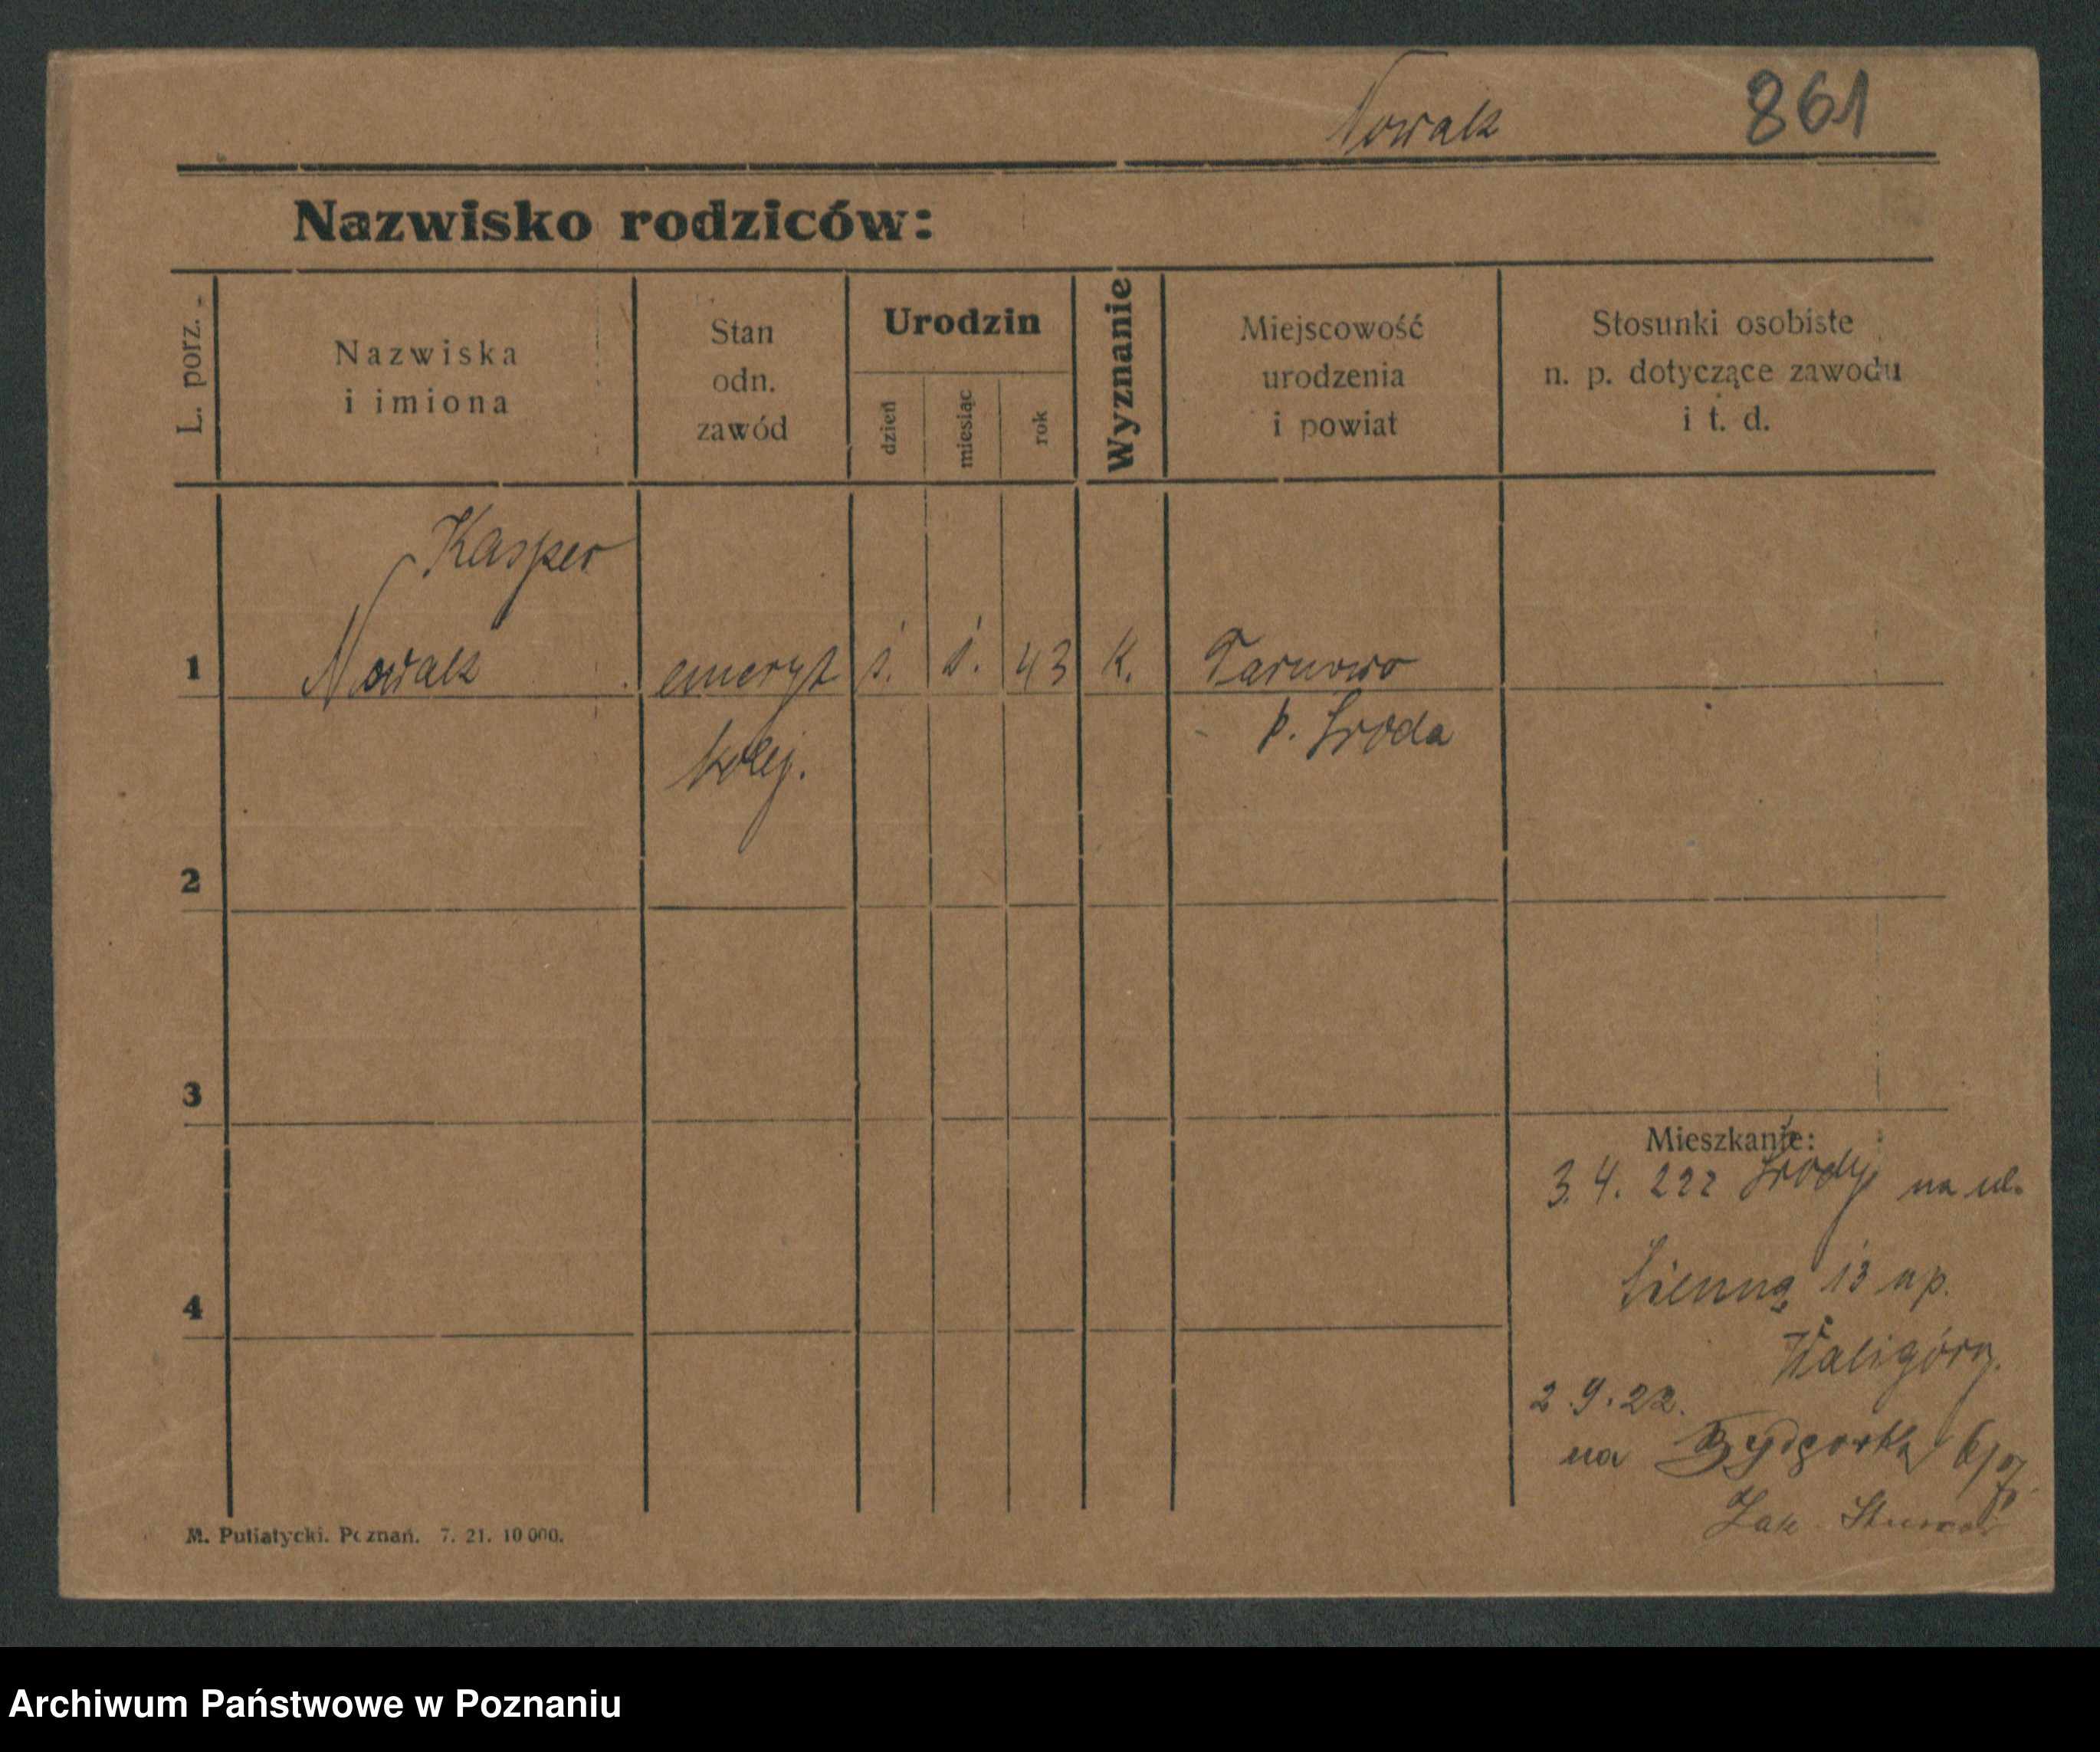 Nowak 861
Nazwisko rodziców:
L. porz.
Nazwiska
i imiona
Stan
odn.
zawód
Urodzin
dzień
miesiąc
rok
Wyznanie
Miejscowość
urodzenia
i powiat
Stosunki osobiste
n. p. dotyczące zawodu
i t. d.
Kasper
1 Nowak emeryt 1. 1. 43 k. Tarnowo
kolej. p. Środa
2
3
4
Mieszkanie:
3. 4. 22 z Środy na ul.
Sienną 13 u p.
Waligóry.
2.9.22.
na Bydgoska
M. Putiatycki. Poznań. 7. 21. 10 000.
Archiwum Państwowe w Poznaniu